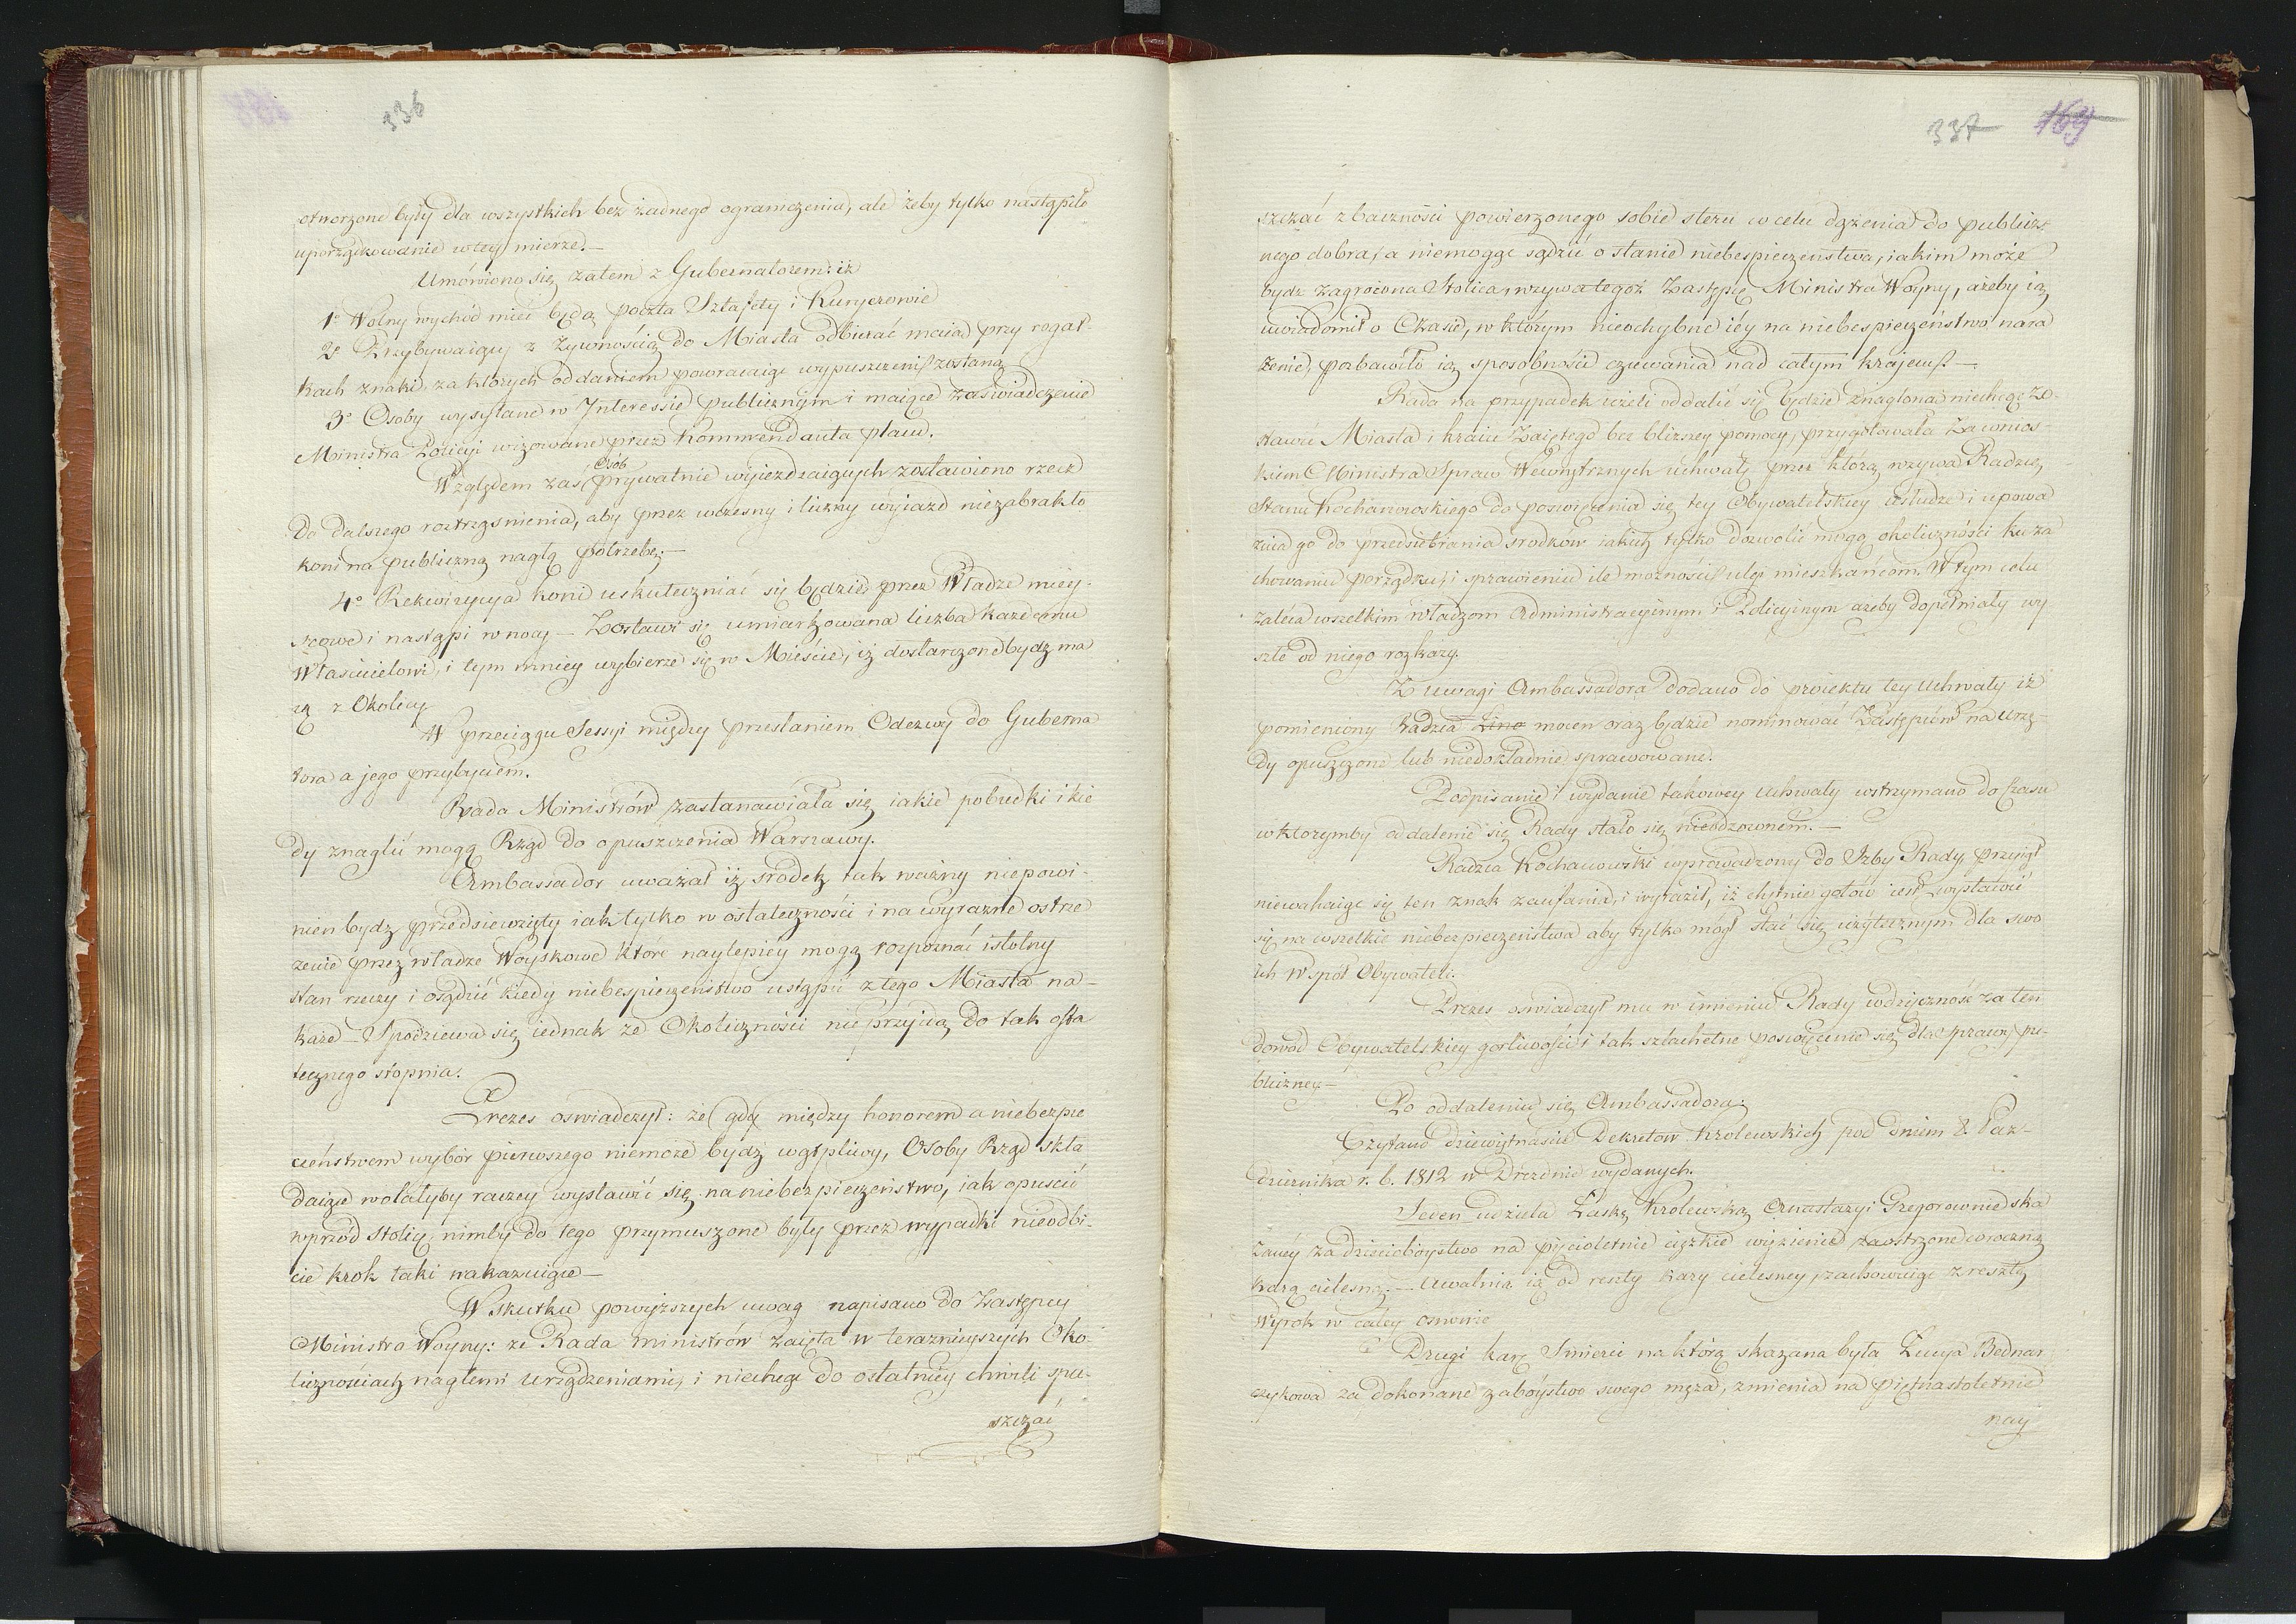 336
otworzone były dla wszystkich bez żadnego ograniczenia, ale żeby tylko nastąpiło
uporządkowanie w tey mierze.—
Umówiono się zatem z Gubernatorem: iż
1º Wolny wychód mieć będą poczta Sztafety i Kuryerowie
2º Przybywaiący z żywnością do Miasta odbierać maią przy rogat-
kach znaki, za których oddaniem powracaiąc wypuszczeni zostaną
3º Osoby wysyłane w Interessie publicznym i maiące zaświadczenie
Ministra Policyi wizowane przez Kommendanta placu.
Względem zaś Osób prywatnie wyieżdzaiących zostawiono rzecz
do dalszego roztrząśnienia, aby przez wczesny i liczny wyiazd niezabrakło
koni na publiczną nagłą potrzebę.—
4º Rekwizycya koni uskuteczniać się będzie przez Władze miey-
scowe i nastąpi w nocy — Zostawi się umiarkowana liczba każdemu
Właścicielowi, i tym mniey wybierze się w Mieście, iż dostarczone bydz ma
ią z Okolicy
W przeciągu Sessyi między przesłaniem Odezwy do Guberna
tora a jego przybyciem.
Rada Ministrów zastanawiała się iakie pobudki i kie
dy znaglić mogą Rząd do opuszczenia Warszawy.
Ambassador uważał iż środek tak ważny niepowi-
nien bydz przedsiewzięty iak tylko w ostateczności i na wyrazne ostrze
żenie przez władze Woyskowe które naylepiey mogą rozpoznać istotny
stan rzeczy i osądzić kiedy niebespieczeństwo ustąpić z tego Miasta na-
każe — Spodziewa się iednak że Okoliczności nie przyidą do tak osta
tecznego stopnia.
Prezes oświadczył: że gdy między honorem a niebezpie
czeństwem wybór pierwszego niemoże bydz wątpliwy, Osoby Rząd skła
daiące wolałyby raczey wystawić się na niebezpieczeństwo, jak opuścić
wprzód Stolicę, nimby do tego przymuszone były przez wypadki nieodbi-
cie krok taki nakazuiące —
W skutku powyższych uwag napisano do Zastępcy
Ministra Woyny: że Rada Ministrów zaięta w teraznieyszych Oko-
licznościach nagłemi urządzeniami, i niechcąc do ostatniey chwili spu-
szczać
337 169
szczać z baczności powierzonego sobie steru w celu dążenia do publicz-
nego dobra, a niemogąc sądzić o stanie niebespieczeństwa, iakim może
bydz zagrożona Stolica, wzywa tegoż Zastępcę Ministra Woyny, ażeby ią
uwiadomił o Czasie, w którym nieochybne iéy na niebespieczeństwo nara
żenie, pozbawiło ią sposobności czuwania nad całym krajem.—
Rada na przypadek ieżeli oddalić się będzie znaglona niechcąc zo-
stawić Miasta i kraiu Zaiętego bez bliższey pomocy, przygotowała za wnios-
kiem Ministra Spraw Wewnętrznych uchwałę przez którą wzywa Radzcę
Stanu Kochanowskiego do poswięcenia się tey Obywatelskiey usłudze i upowa
żnia go do przedsiebrania środków iakich tylko dozwolić mogą okoliczności ku za
chowaniu porządku, i sprawieniu ile możności ulgi mieszkańcom. W tym celu
zaleca wszelkim władzom Administracyinym i Policyinym ażeby dopełniały wy
szłe od niego rozkazy.
Z uwagi Ambassadora dodano do proiektu tey Uchwały iż
pomieniony Radzca mocen oraz będzie nominować Zastępców na urzę-
dy opuszczone lub niedokładnie sprawowane.
Podpisanie i wydanie takowey Uchwały wstrzymano do Czasu
w którymby oddalenie się Rady stało się nieodzownem.—
Radzca Kochanowski wprowadzony do Izby Rady, przyiął
niewahaiąc się ten znak zaufania, i wyraził, iż chętnie gotów iest wystawić
się na wszelkie niebezpieczeństwa aby tylko mógł stać się użytecznym dla swo
ich Współ Obywateli.
Prezes oświadczył mu w imieniu Rady wdzięczność za ten
dowód Obywatelskiey gorliwości i tak szlachetne poswięcenie się dla sprawy pu-
bliczney.—
Po oddaleniu się Ambassadora;
Czytano dziewiętnaście Dekretów Królewskich pod dniem 8. Paz-
dziernika r. b. 1812 w Dreznie wydanych.
Jeden udziela Łaskę Królewską Anastazyi Gregorownie ska
zanéy za dzieciobóystwo na pięcioletnie ciężkie więzienie zaostrzone coroczną
karą cielesną.— Uwalnia ią od reszty kary cielesney, zachowuiąc z resztą
Wyrok w całéy osnowie
Drugi karę Smierci na którą skazana była Łucya Bednar
czykowa za dokonane zabóystwo swego męża, zmienia na piętnastoletnie
nay